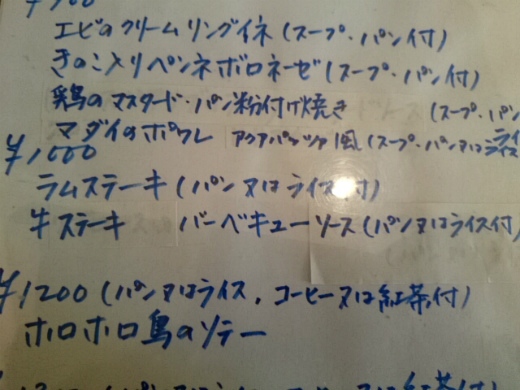 エビのクリームリングイネ (スープ・パン付)
きのこ入りペンネボロネーゼ (スープ・パン付)
鶏のマスタード・パン粉付け焼き (スープ・パン
マダイのポワレ アクアパッツァ風 (スープ・パン又はライス
¥1000
ラムステーキ (パン又はライス付)
牛ステーキ バーベキューソース (パン又はライス付)
¥1200 (パン又はライス、コーヒー又は紅茶付)
ホロホロ鳥のソテー